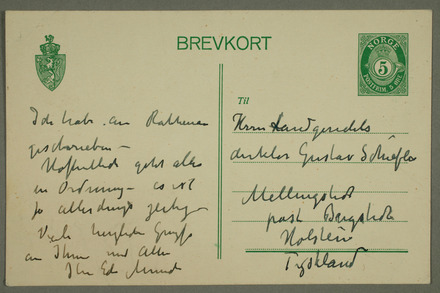 BREVKORT
NORGE
5
Til
Ich habe an Rathenau
geschrieben –
Hoffentlich geht alles
in Ordnung – es ist
ja allerdings
Viele herzliche Grüsse
an Ihnen und Allen
Ihr Ed. Munch
Herrn Landgerichts
direktor Gustav Schiefler
Mellingstedt
post Bergstedt
Holstein
Tyskland